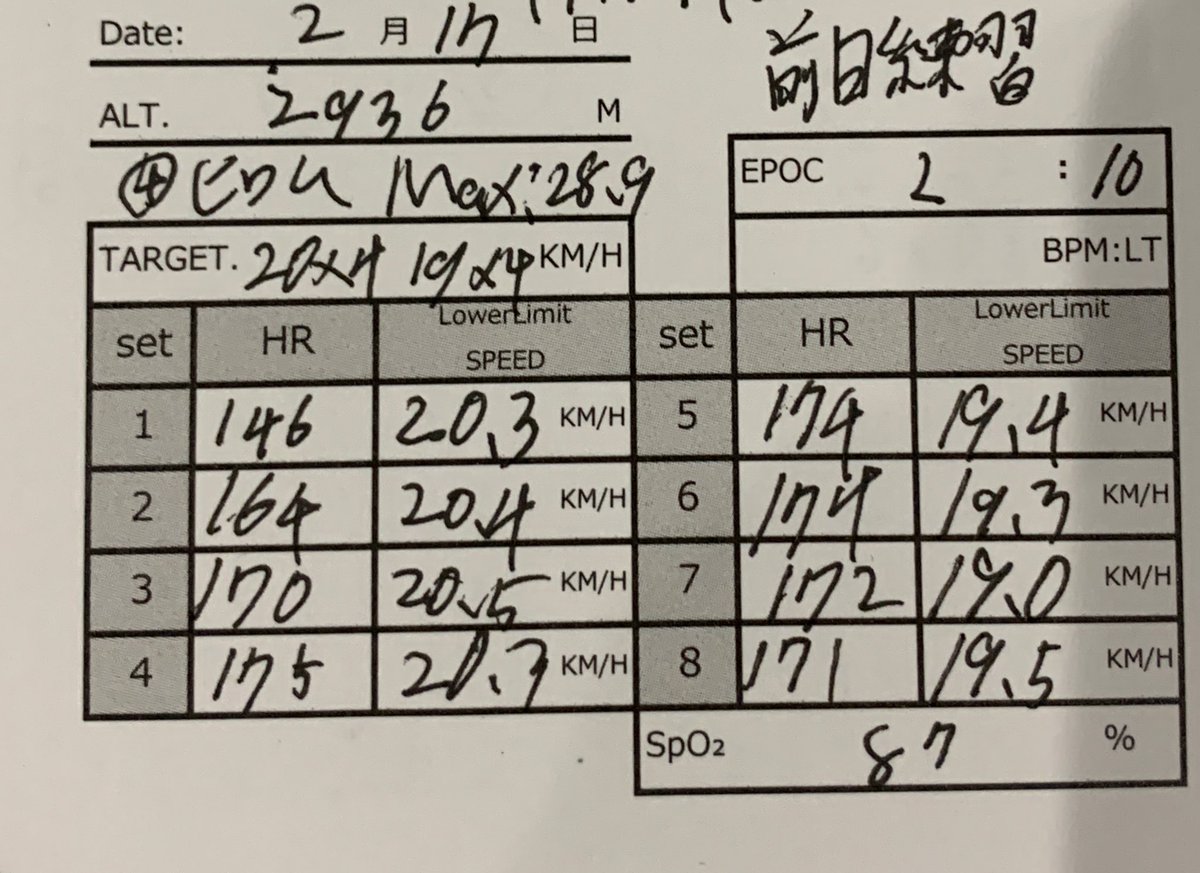 Date: 2 月 17 日
前日練習
ALT. 2936 M
④ ビルム Max: 28.9
EPOC 2 : 10
TARGET. 20×4 19×4 KM/H
BPM:LT
set HR LowerLimit SPEED set HR LowerLimit SPEED
1 146 20.3 KM/H 5 174 19.4 KM/H
2 164 20.4 KM/H 6 174 19.3 KM/H
3 170 20.5 KM/H 7 172 19.0 KM/H
4 175 20.7 KM/H 8 171 19.5 KM/H
SpO2 87 %